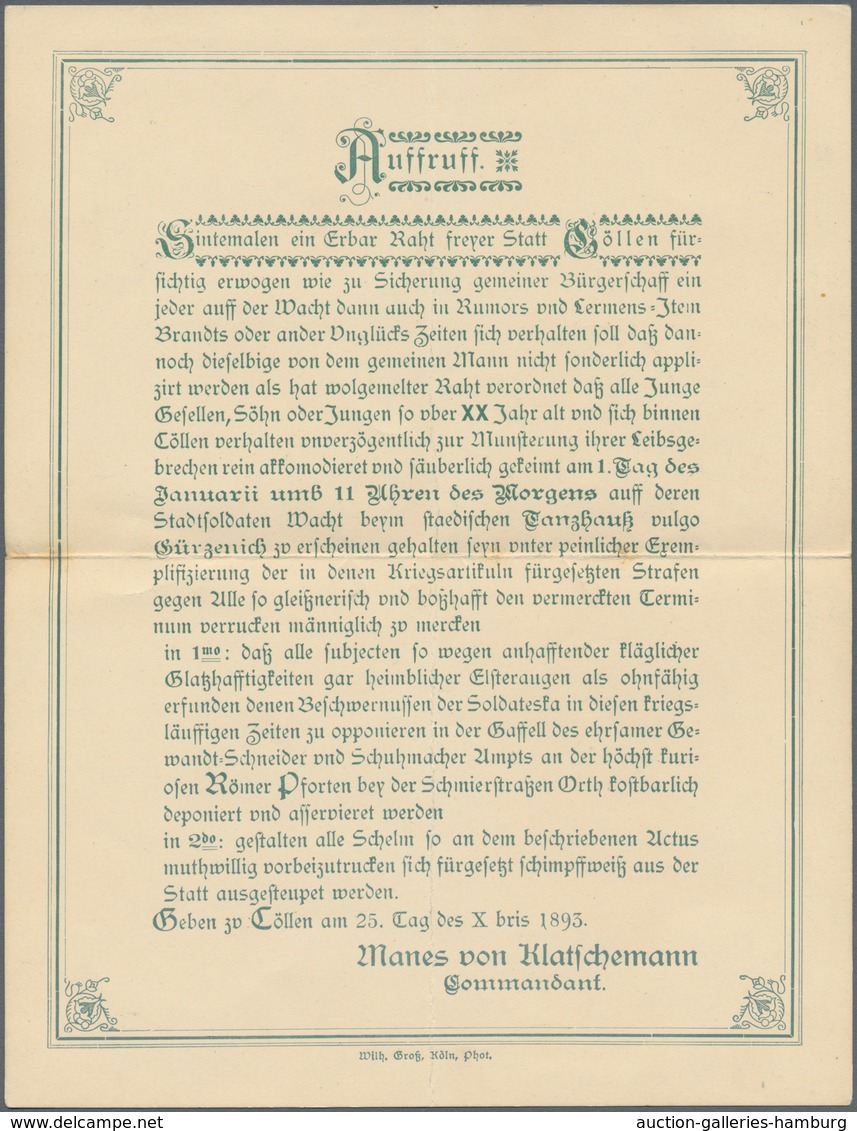 Auffruff.
Sintemalen ein Erbar Raht freyer Statt Cöllen für-
sichtig erwogen wie zu Sicherung gemeiner Bürgerschaff ein
jeder auff der Wacht dann auch in Rumors vnd Lermens-Item
Brandts oder ander Vnglücks Zeiten sich verhalten soll daß dan-
noch dieselbige von dem gemeinen Mann nicht sonderlich appli-
zirt werden als hat wolgemelter Raht verordnet daß alle Junge
Gesellen, Söhn oder Jungen so vber XX Jahr alt vnd sich binnen
Cöllen verhalten vnverzögentlich zur Munsterung ihrer Leibsge-
brechen rein akkomodieret vnd säuberlich gekeimt am 1. Tag des
Januarii umb 11 Uhren des Morgens auff deren
Stadtsoldaten Wacht beym staedischen Tanzhauß vulgo
Gürzenich zv erscheinen gehalten seyn vnter peinlicher Exem-
plifizierung der in denen Kriegsartikuln fürgesetzten Strafen
gegen Alle so gleißnerisch vnd boßhafft den vermerckten Termi-
num verrucken männiglich zv mercken
in 1mo: daß alle subjecten so wegen anhafftender kläglicher
Glatzhafftigkeiten gar heimblicher Elsteraugen als ohnfähig
erfunden denen Beschwernussen der Soldateska in diesen kriegs-
läuffigen Zeiten zu opponieren in der Gaffell des ehrsamer Ge-
wandt-Schneider vnd Schuhmacher Ampts an der höchst kuri-
osen Römer Pforten bey der Schmierstraßen Orth kostbarlich
deponiert vnd asservieret werden
in 2do: gestalten alle Schelm so an dem beschriebenen Actus
muthwillig vorbeizutrucken sich fürgesetzt schimpffweiß aus der
Statt ausgesteupet werden.
Geben zv Cöllen am 25. Tag des X bris 1893.
Manes von Klatschemann
Commandant.
Wilh. Groß, Köln, Phot.
auction-galleries-hamburg